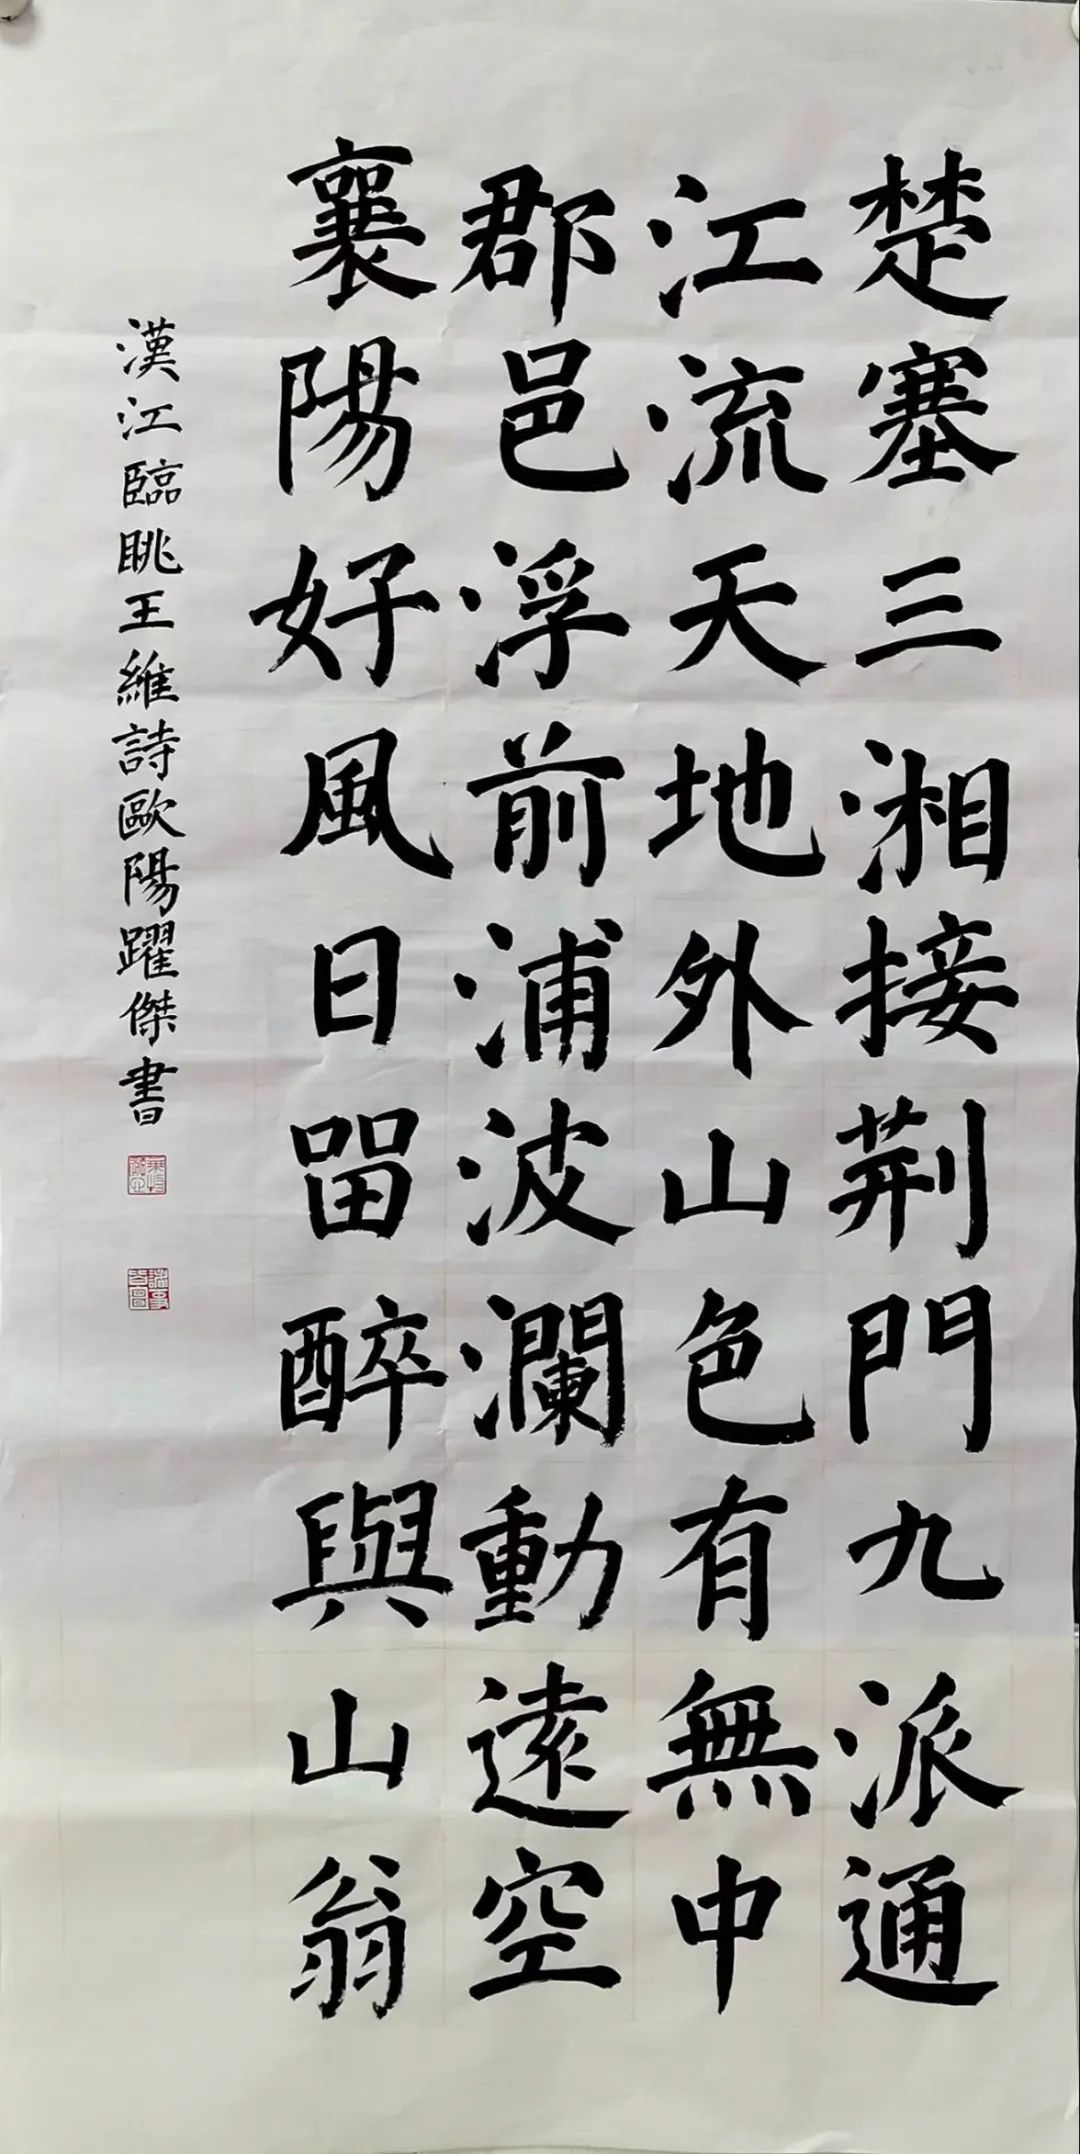 楚塞三湘接荆門九派通
江流天地外山色有無中
郡邑浮前浦波瀾動遠空
襄陽好風日留醉與山翁
漢江臨眺王維詩歐陽躍傑書